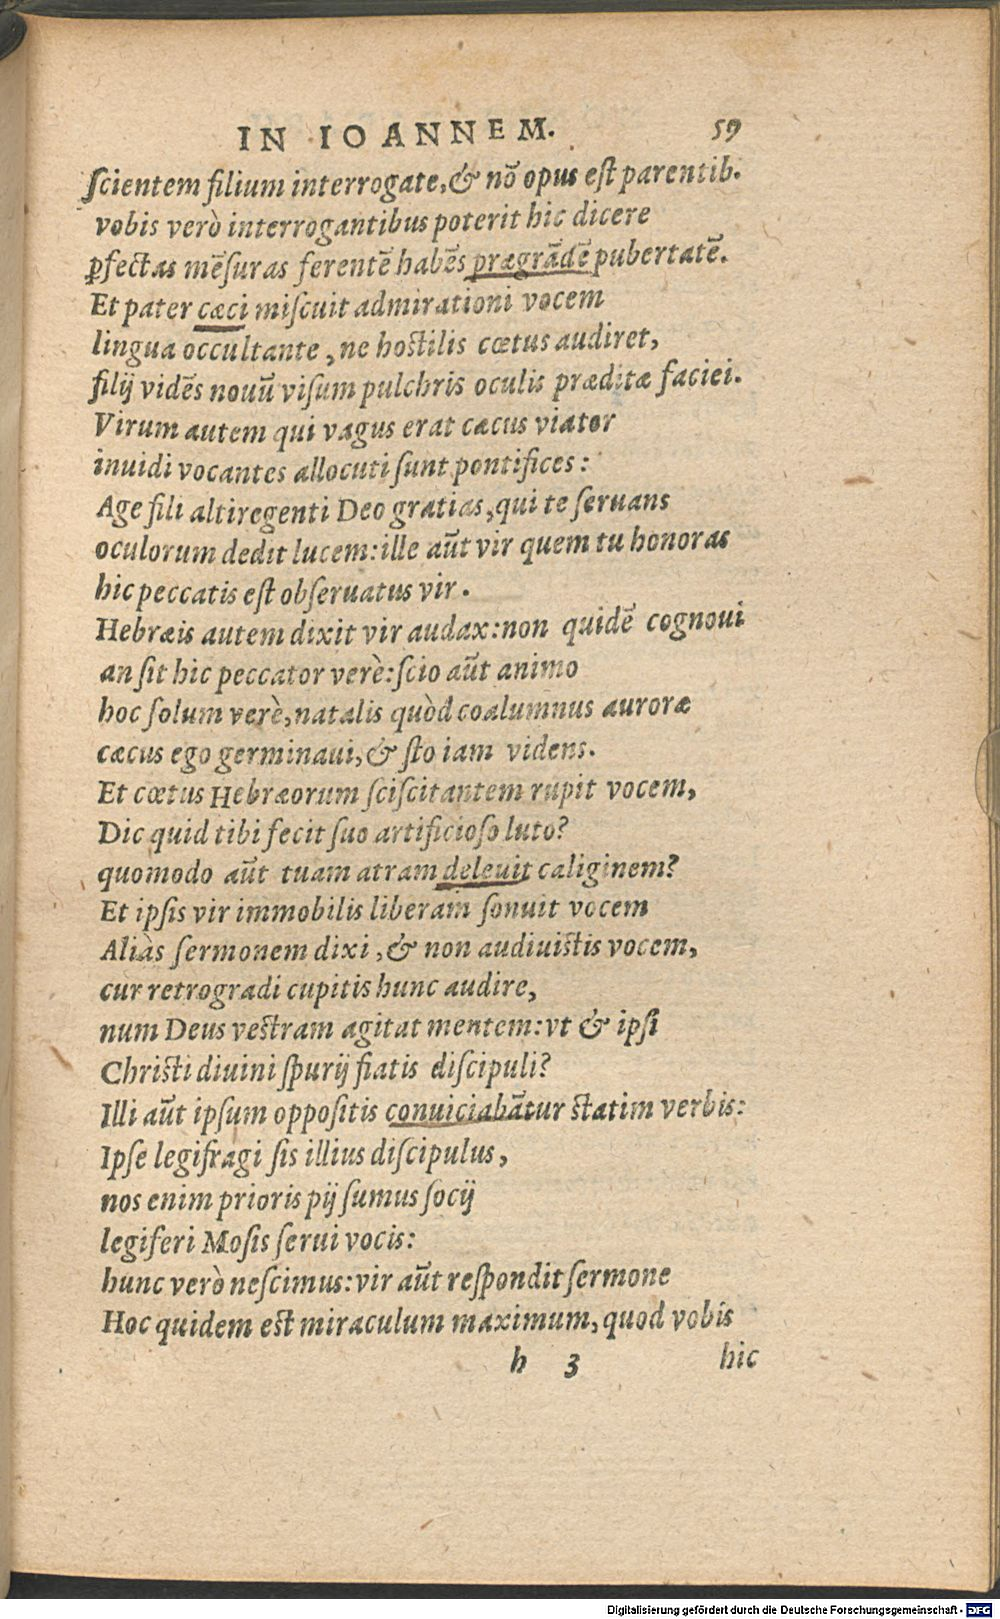 IN IOANNEM. 59
ſcientem filium interrogate,& nō opus eſt parentib.
vobis verò interrogantibus poterit hic dicere
ꝑfectas mēſuras ferentē habēs prægrādē pubertatē.
Et pater cæci miſcuit admirationi vocem
lingua occultante, ne hoſtilis cœtus audiret,
filij vidēs nouū viſum pulchris oculis præditæ faciei.
Virum autem qui vagus erat cæcus viator
inuidi vocantes allocuti ſunt pontifices:
Age fili altiregenti Deo gratias, qui te ſeruans
oculorum dedit lucem: ille aūt vir quem tu honoras
hic peccatis eſt obſeruatus vir.
Hebræis autem dixit vir audax: non quidē cognoui
an ſit hic peccator verè: ſcio aūt animo
hoc ſolum verè, natalis quòd coalumnus auroræ
cæcus ego germinaui, & ſto iam videns.
Et cœtus Hebræorum ſciſcitantem rupit vocem,
Dic quid tibi fecit ſuo artificioſo luto?
quomodo aūt tuam atram deleuit caliginem?
Et ipſis vir immobilis liberam ſonuit vocem
Aliàs ſermonem dixi, & non audiuiſtis vocem,
cur retrogradi cupitis hunc audire,
num Deus veſtram agitat mentem: vt & ipſi
Chriſti diuini ſpurij fiatis diſcipuli?
Illi aūt ipſum oppoſitis conuiciabātur ſtatim verbis:
Ipſe legifragi ſis illius diſcipulus,
nos enim prioris pij ſumus ſocij
legiferi Moſis ſerui vocis:
hunc verò neſcimus: vir aūt reſpondit ſermone
Hoc quidem eſt miraculum maximum, quod vobis
h 3 hic
Digitalisierung gefördert durch die Deutsche Forschungsgemeinschaft - DFG